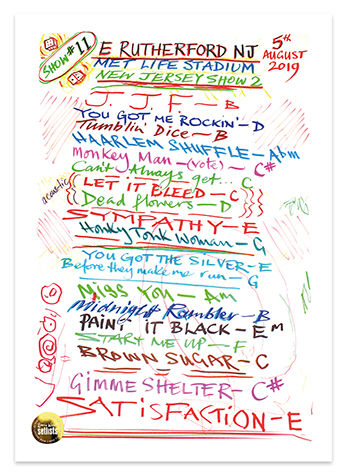 SHOW #11
E RUTHERFORD NJ
5th AUGUST 2019
MET LIFE STADIUM
NEW JERSEY SHOW 2
J. J. F - B
YOU GOT ME ROCKIN' - D
Tumblin' Dice - B
HAARLEM SHUFFLE - Abm
Monkey Man - (vote) - C#
Can't Always get... C
acoustic
LET IT BLEED - C
Dead flowers - D
SYMPATHY - E
Honky Tonk Woman - G
YOU GOT THE SILVER - E
Before they make me run - G
MISS YOU - Am
Midnight Rambler - B
PAINT IT BLACK - Em
START ME UP - F
BROWN SUGAR - C
GIMME SHELTER - C#
SATISFACTION - E
setlists